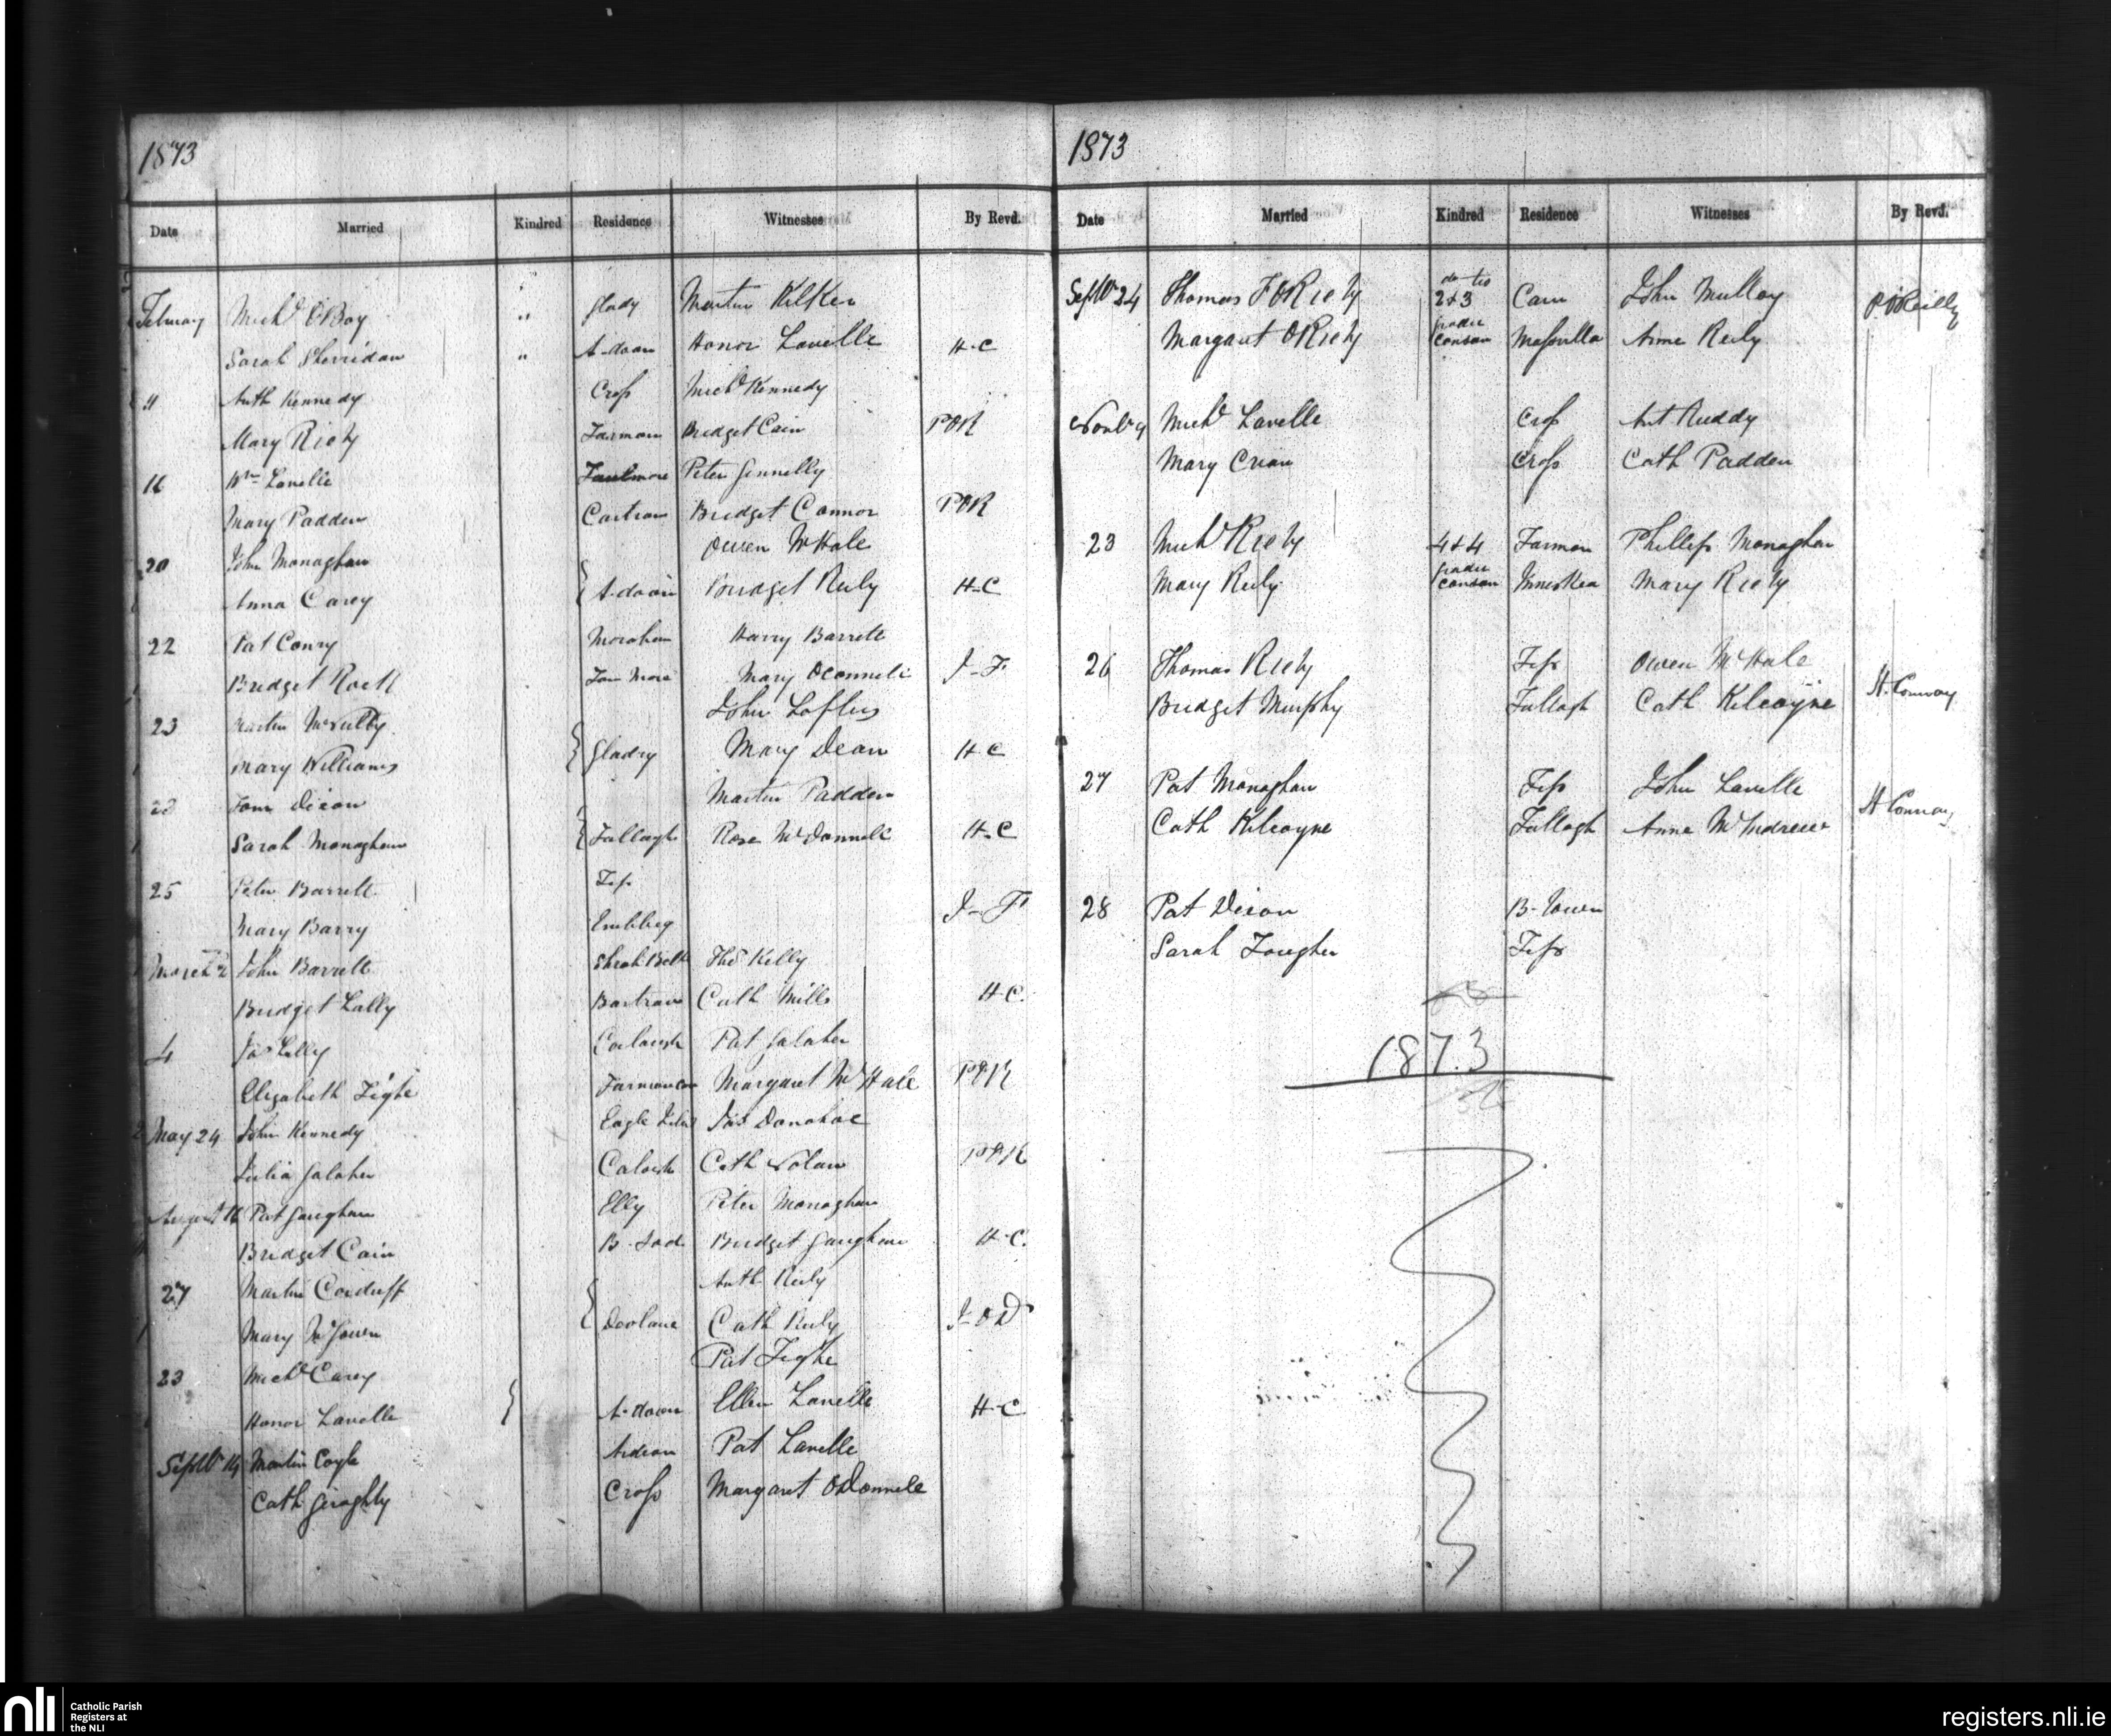 1873
Date Married Kindred Residence Witnesses By Revd.
February Michd Boy " Glady Martin Kilker
Sarah Sherridan " A-doon Honor Lavelle H-C
11 Anth Kennedy Cross Michd Kennedy
Mary Riely Tarmon Bridget Cain POR
16 Wm Lavelle Peter Ginnelly
Mary Padden Cartron Bridget Connor POR
20 John Monaghan Owen McHale
Anna Carey A-doon Bridget Riely H-C
22 Pat Conry Morahan Harry Barrett
Bridget Mary OConnell J-F
23 Martin McNulty John Loftus
Mary Williams Gladry Mary Dean H-C
23 Tom Dixon Martin Padden
Sarah Monaghan Tallagh Rose McDonnell H-C
25 Peter Barrett Tip
Mary Barry Emlybeg J-F
March 2 John Barrett Thos Kelly
Bridget Lally Bartraw Cath Mills H-C.
4 Jas Lally Pat Galaher
Elizabeth Tighe Tarmoncar Margaret McHale POR
May 24 John Kennedy Eagle Jas Donohoe
Julia Galaher Cath Nolan POR
August 16 Pat Gaughan Elly Peter Monaghan
Bridget Cain B- Bridget Gaughan H-C.
27 Martin Corduff Anth Riely
Mary McGowen Doolane Cath Riely J-OD
23 Michd Carey Pat Tighe
Honor Lavelle A-doon Ellen Lavelle H-C
Septbr 14 Martin Coyle Pat Lavelle
Cath Geraghty Cross Margaret ODonnell
1873
Date Married Kindred Residence Witnesses By Revd.
Septbr 24 Thomas F ORiely 2&3 Carn John Mulloy P. OReilly
Margaret ORiely gradu consan Anne Riely
Novbr 9 Michd Lavelle Cross Ant Ruddy
Mary Crean Cross Cath Padden
23 Michd Riely 4&4 Tarmon Phillip Monaghan
Mary Riely gradu consan Inniskea Mary Riely
26 Thomas Riely Tip Owen McHale
Bridget Murphy Tallagh Cath Kilcoyne H. Conway
27 Pat Monaghan Tip John Lavelle
Cath Kilcoyne Tallagh Anne McAndrew H Conway
28 Pat Dixon B-Town
Sarah Tougher Tip
1873
nli
Catholic Parish
Registers at
the NLI
registers.nli.ie